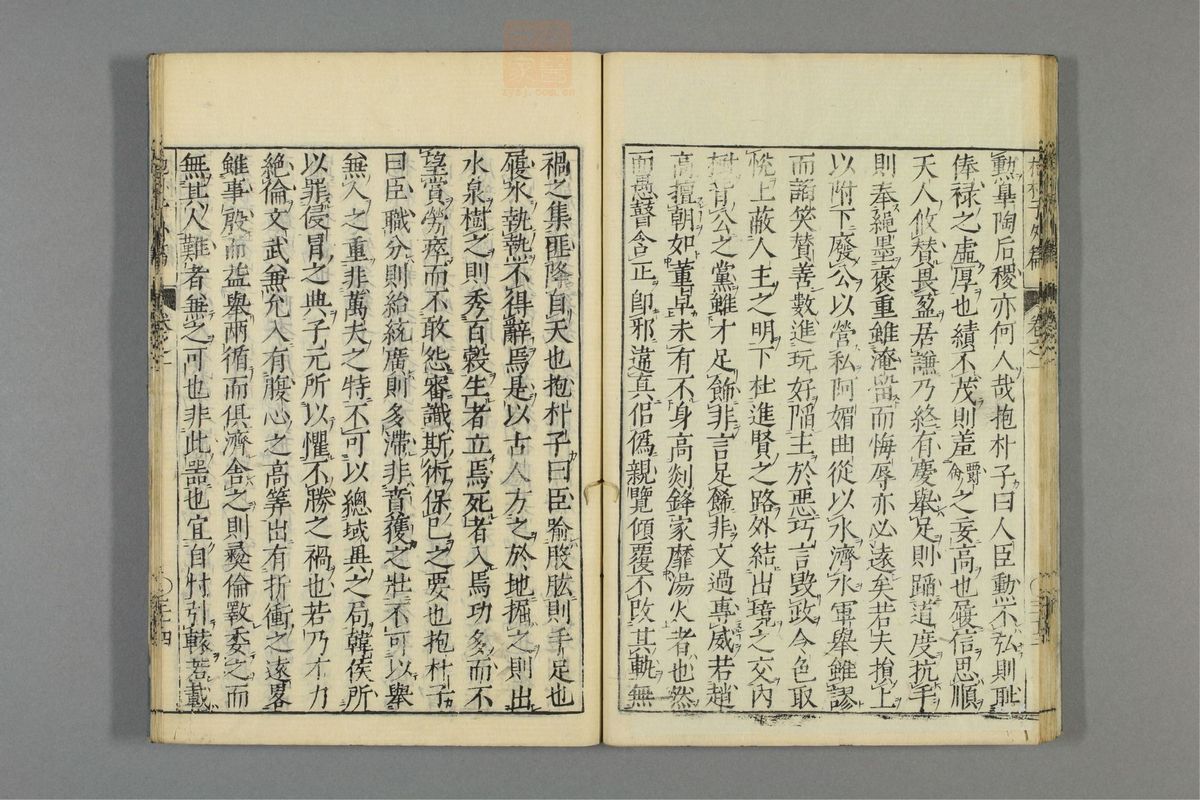 勲皐陶后稷亦何人哉抱朴子曰人臣勲不弘則耻
俸禄之虚厚也績不茂則羞爵命之妄高也履信思順
天人攸賛畏盈居謙乃終有慶舉足則蹈道度抗手
則奉繩墨褒重雖淹留而悔辱亦必遠矣若夫損上
以附下廢公以營私阿媚曲從以水濟水軍舉雖謬
而謟笑賛善數進玩好陷主於惡巧言毀政令色取
恱上蔽人主之明下杜進賢之路外結出境之交内
樹背公之黨雖才足飾非言足餙非文過專威若趙
高擅朝如董卓未有不身高剡鋒家靡湯火者也然
而愚瞽舎正即邪違真侶僞親覽傾覆不改其軌無
禍之集匪降自天也抱朴子曰臣喻股肱則手足也
履氷執熱不得辭焉是以古人方之於地掘之則出
水泉樹之則秀百穀生者立焉死者入焉功多而不
望賞勞瘁而不敢怨審識斯術保已之要也抱朴子
曰臣職分則紿統廣則多滯非音獲之壯不可以舉
無人之重非萬夫之特不可以總域異之局韓侯所
以罪侵冒之典子元所以懼不勝之禍也若乃才力
絶倫文武無允入有腹心之高筭出有折衝之遠畧
雖事殷而益舉兩循而倶濟舎之則彛倫斁委之而
無其人難者無之可也非此噐也宜自忖引轅若載